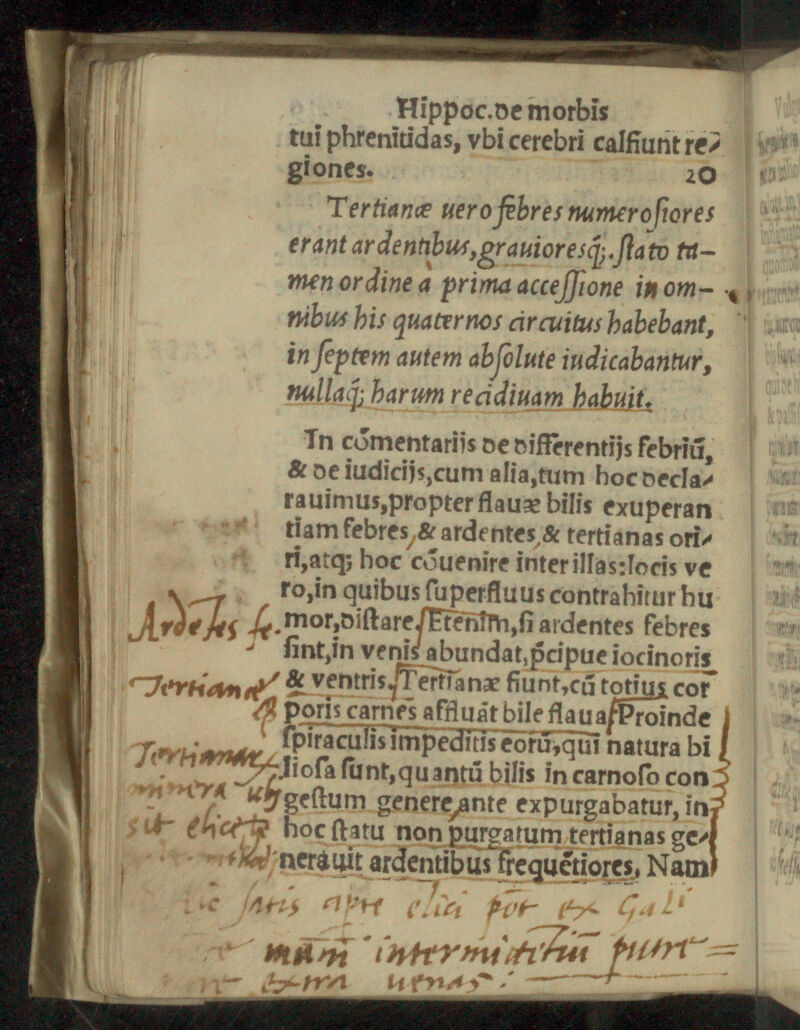 Hippoc.de morbis
tui phrenitidas, vbi cerebri calfiunt re⸗
giones. 20
Tertianæ uero febres numerosiores
erant ardentibus,grauioresq́;.stato ta-
men ordine à prima accessione in om-
nibus his quaternos circuitus habebant,
in septem autem absolute iudicabantur,
nullaq́; harum recidiuam habuit.
In cōmentariis de differentijs febriū,
& de iudicijs,cum alia,tum hoc decla⸗
rauimus,propter flauæ bilis exuperan
tiam febres,& ardentes,& tertianas ori⸗
ri,atq; hoc cōuenire inter illas:locis ve
ro,in quibus superfluus contrahitur hu
Ardētes fe. mor,distare.Etenim,si ardentes febres
sint,in venis abundat,p̄cipue iocinoris
Tertianæ & ventris.Tertianæ fiunt,cū totius cor
poris carnes affluāt bile flaua.Proinde
spiraculis impeditis eorū,qui natura bi
Tertianæ liosa sunt,quantū bilis in carnoso con
minera ubi gestum genere,ante expurgabatur, in
sit hoc statu non purgatum tertianas ge⸗
nerauit ardentibus frequētiores, Nam
satis elici pōt ex Gali
intermittētiū putre=
extra uenas.